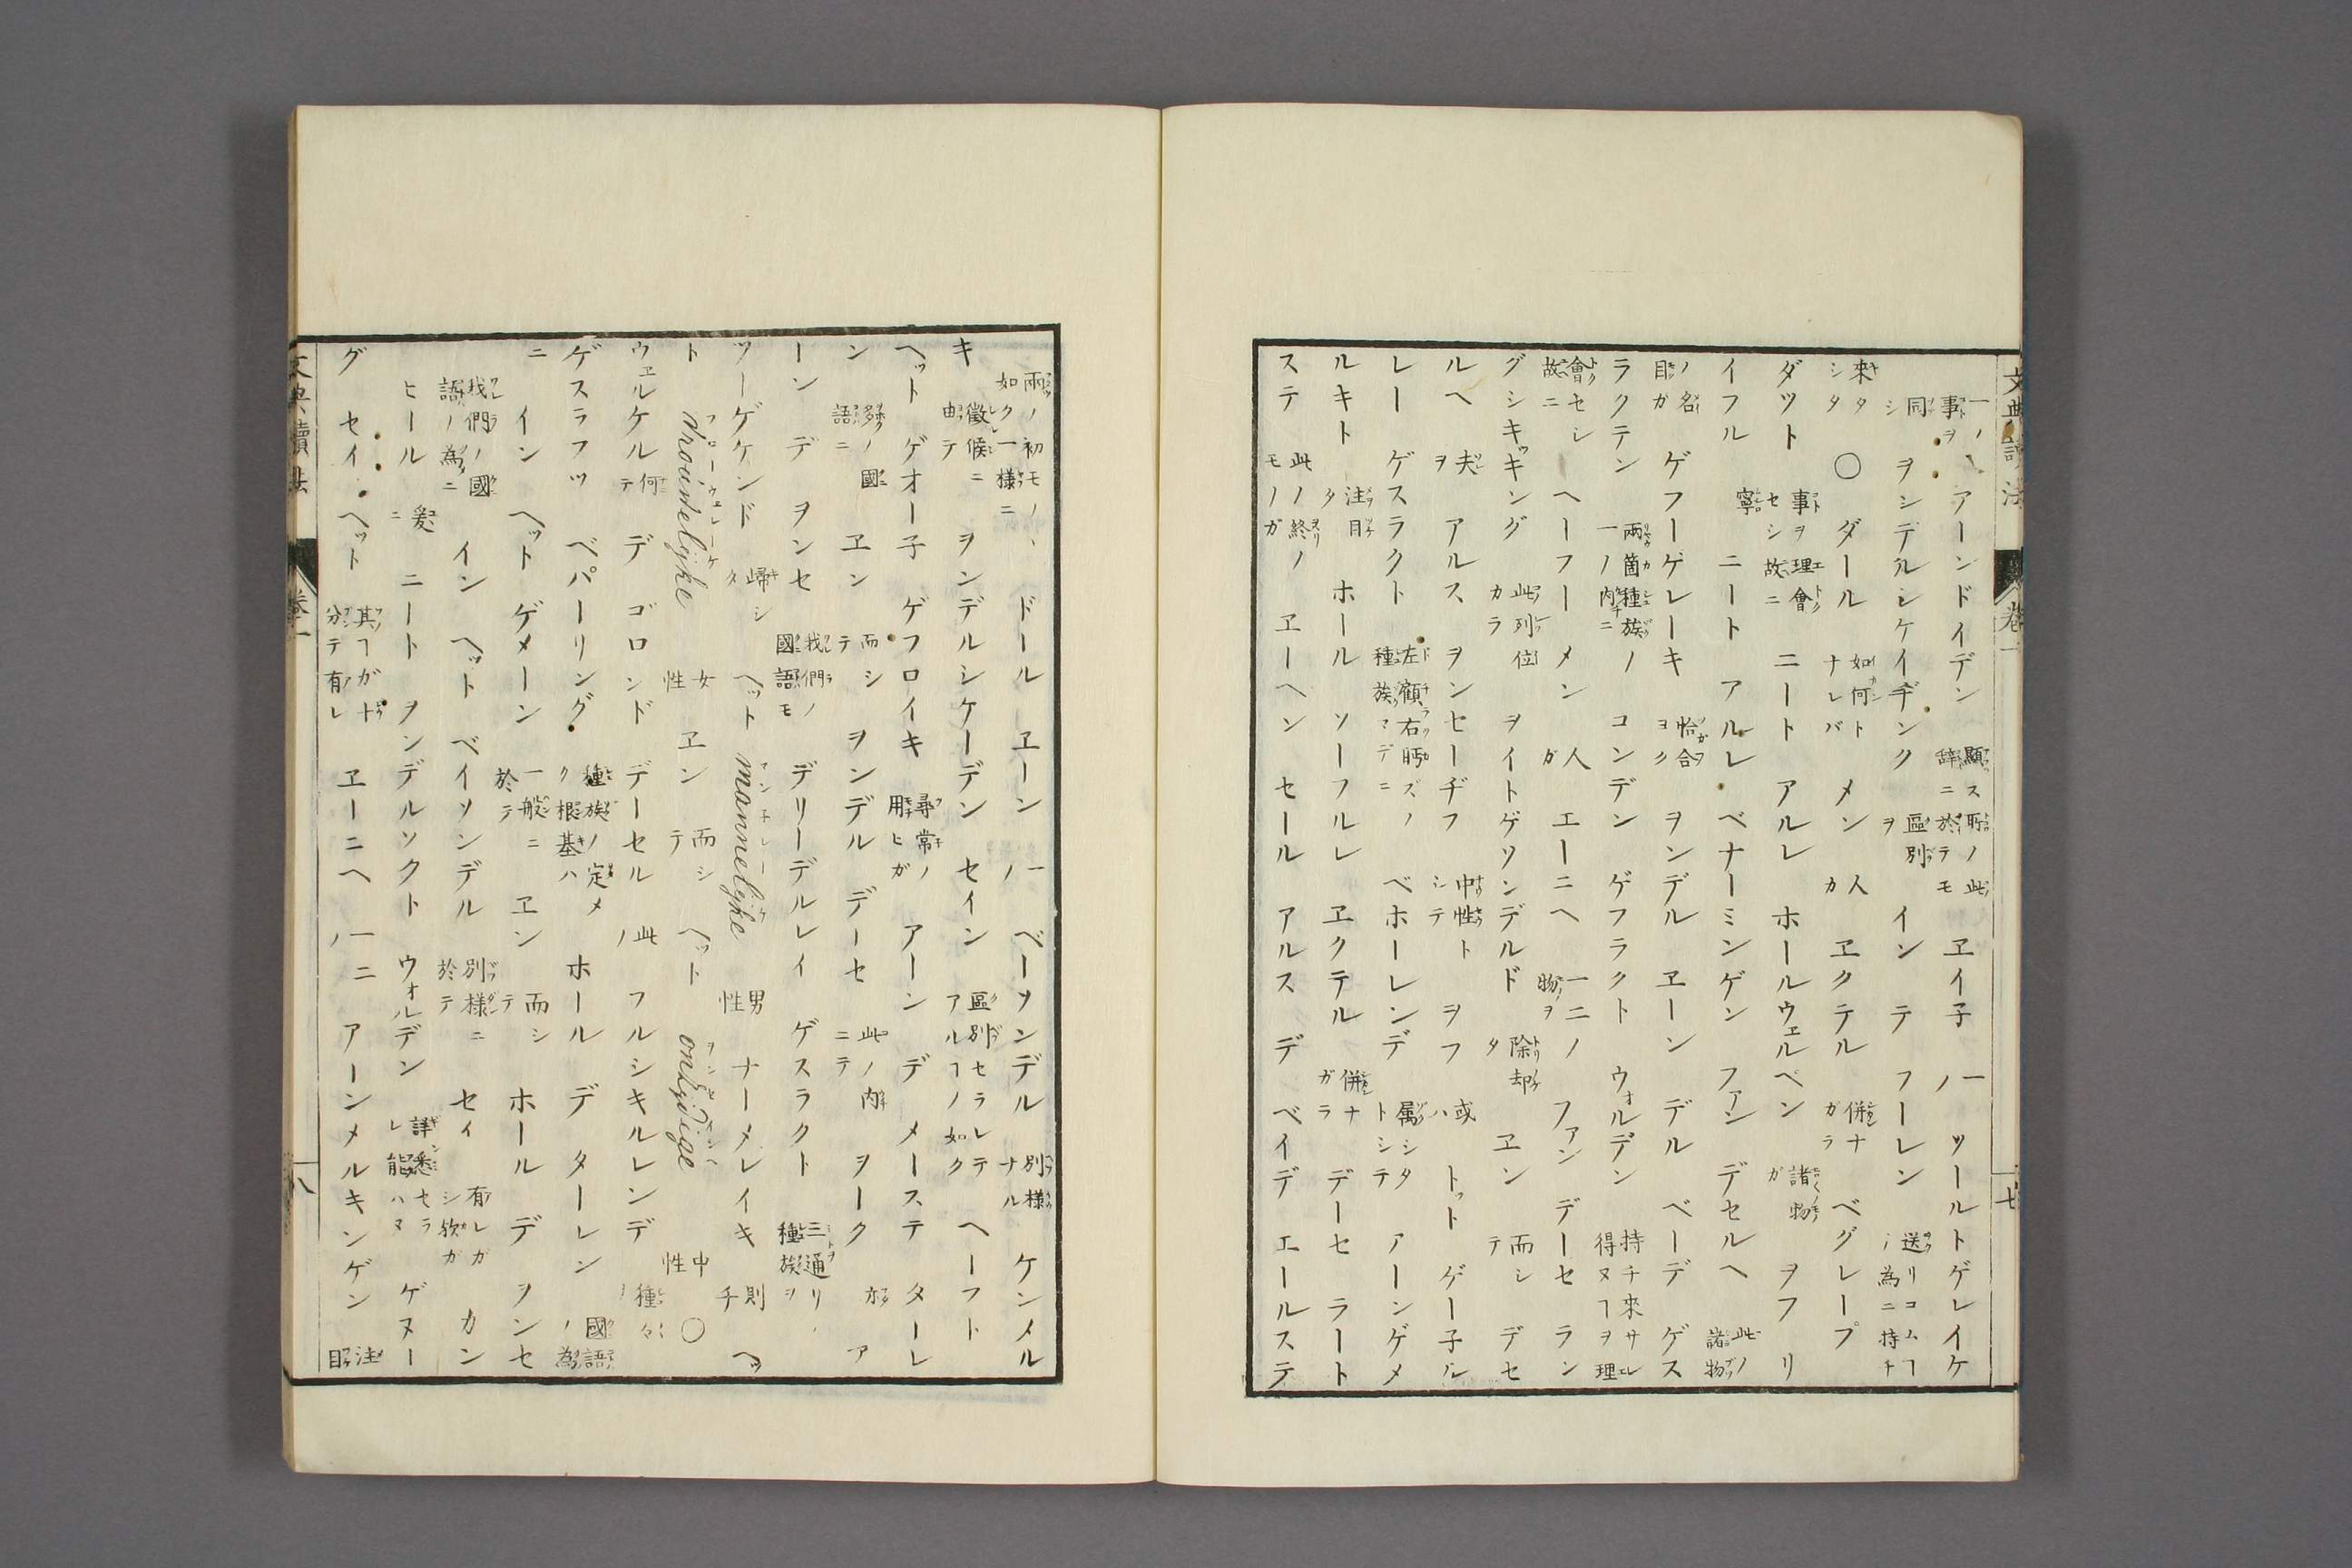 文典讀法 卷一 七
一ノ事ヲ アーンドイデン 顯ス所ノ此辭ニ於テモ ヱイ子 一ノ ソールトゲレイケ
同シ ヲンデルシケイヂンク 區別ヲ イン テ フーレン 送リコムヿノ為ニ持チ
來タシタ 〇 ダール 如何トナレバ メン 人カ ヱクテル 併ナガラ ベグレープ
ダット 事ヲ理會セシ故ニ寧 ニート アルレ ホールウェルペン 諸物ガ ヲフ リ
イフル ニート アルレ ベナーミンゲン ファン デセルヘ 此ノ諸物
ノ名目ガ ゲフーゲレーキ 恰合ヨク ヲンデル ヱーン デル ベーデ ゲス
ラクテン 兩箇種族ノ一ノ内ニ コンデン ゲフラクト ウォルデン 持チ來サレ得ヌヿヲ理
會セシ故ニ ヘーフー メン 人ガ エーニヘ 一二ノ物ヲ ファン デーセ ラン
グシキッキング 此列位カラ ヲイトゲソンデルド 除却タ ヱン 而シテ デセ
ルヘ 夫ヲ アルス ヲンセーヂフ 中性トシテ ヲフ 或ハ トット ゲー子ル
レー ゲスラクト 左顧右眄ズノ種族マデニ ベホーレンデ 属シタトシテ アーンゲメ
ルキト 注目タ ホール ソーフルレ ヱクテル 併ナガラ デーセ ラート
ステ 此ノ終ノモノガ ヱーヘン セール アルス デ ベイデ エールステ
兩ノ初モノヽ如ク一様ニ ドール ヱーン 一ノ ベーソンデル 別様ナル ケンメル
キ 徴候ニ由テ ヲンデルシケーデン セイン 區別セラレテアルヿノ如ク ヘーフト
ヘット ゲオー子 ゲフロイキ 尋常ノ用ヒガ アーン デ メーステ ターレ
ン 多ノ國語ニ ヱン 而シテ ヲンデル デーセ 此ノ内ニテ ヲーク 亦 ア
ーン デ ヲンセ 我們ノ國語モ デリーデルレイ ゲスラクト 三通リ種族ヲ
ツーゲケンド 歸シタ ヘット mannelijke 男性 ナーメレイキ 則チ ヘッ
ト vrouwelijke 女性 ヱン 而シテ ヘット onzijdige 中性 〇
ウェルケル 何テ デ ゴロンド デーセル 此ノ フルシキルレンデ 種々
ゲスラフッ ベパーリング 種族ノ定メク根基ハ ホール デ ターレン 國語ノ為
ニ イン ヘット ゲメーン 一般ニ於テ ヱン 而シテ ホール デ ヲンセ
我們ノ國語ノ為ニ イン ヘット ベイソンデル 別様ニ於テ セイ 有レガシ欤ガ カン
ヒール 爰ニ ニート ヲンデルソクト ウォルデン 詳悉セラレ能ハヌ ゲヌー
グ セイ ヘット 其ヿガ十分テ有レ ヱーニヘ 一二ノ アーンメルキンゲン 注目
文典讀法 卷一 八